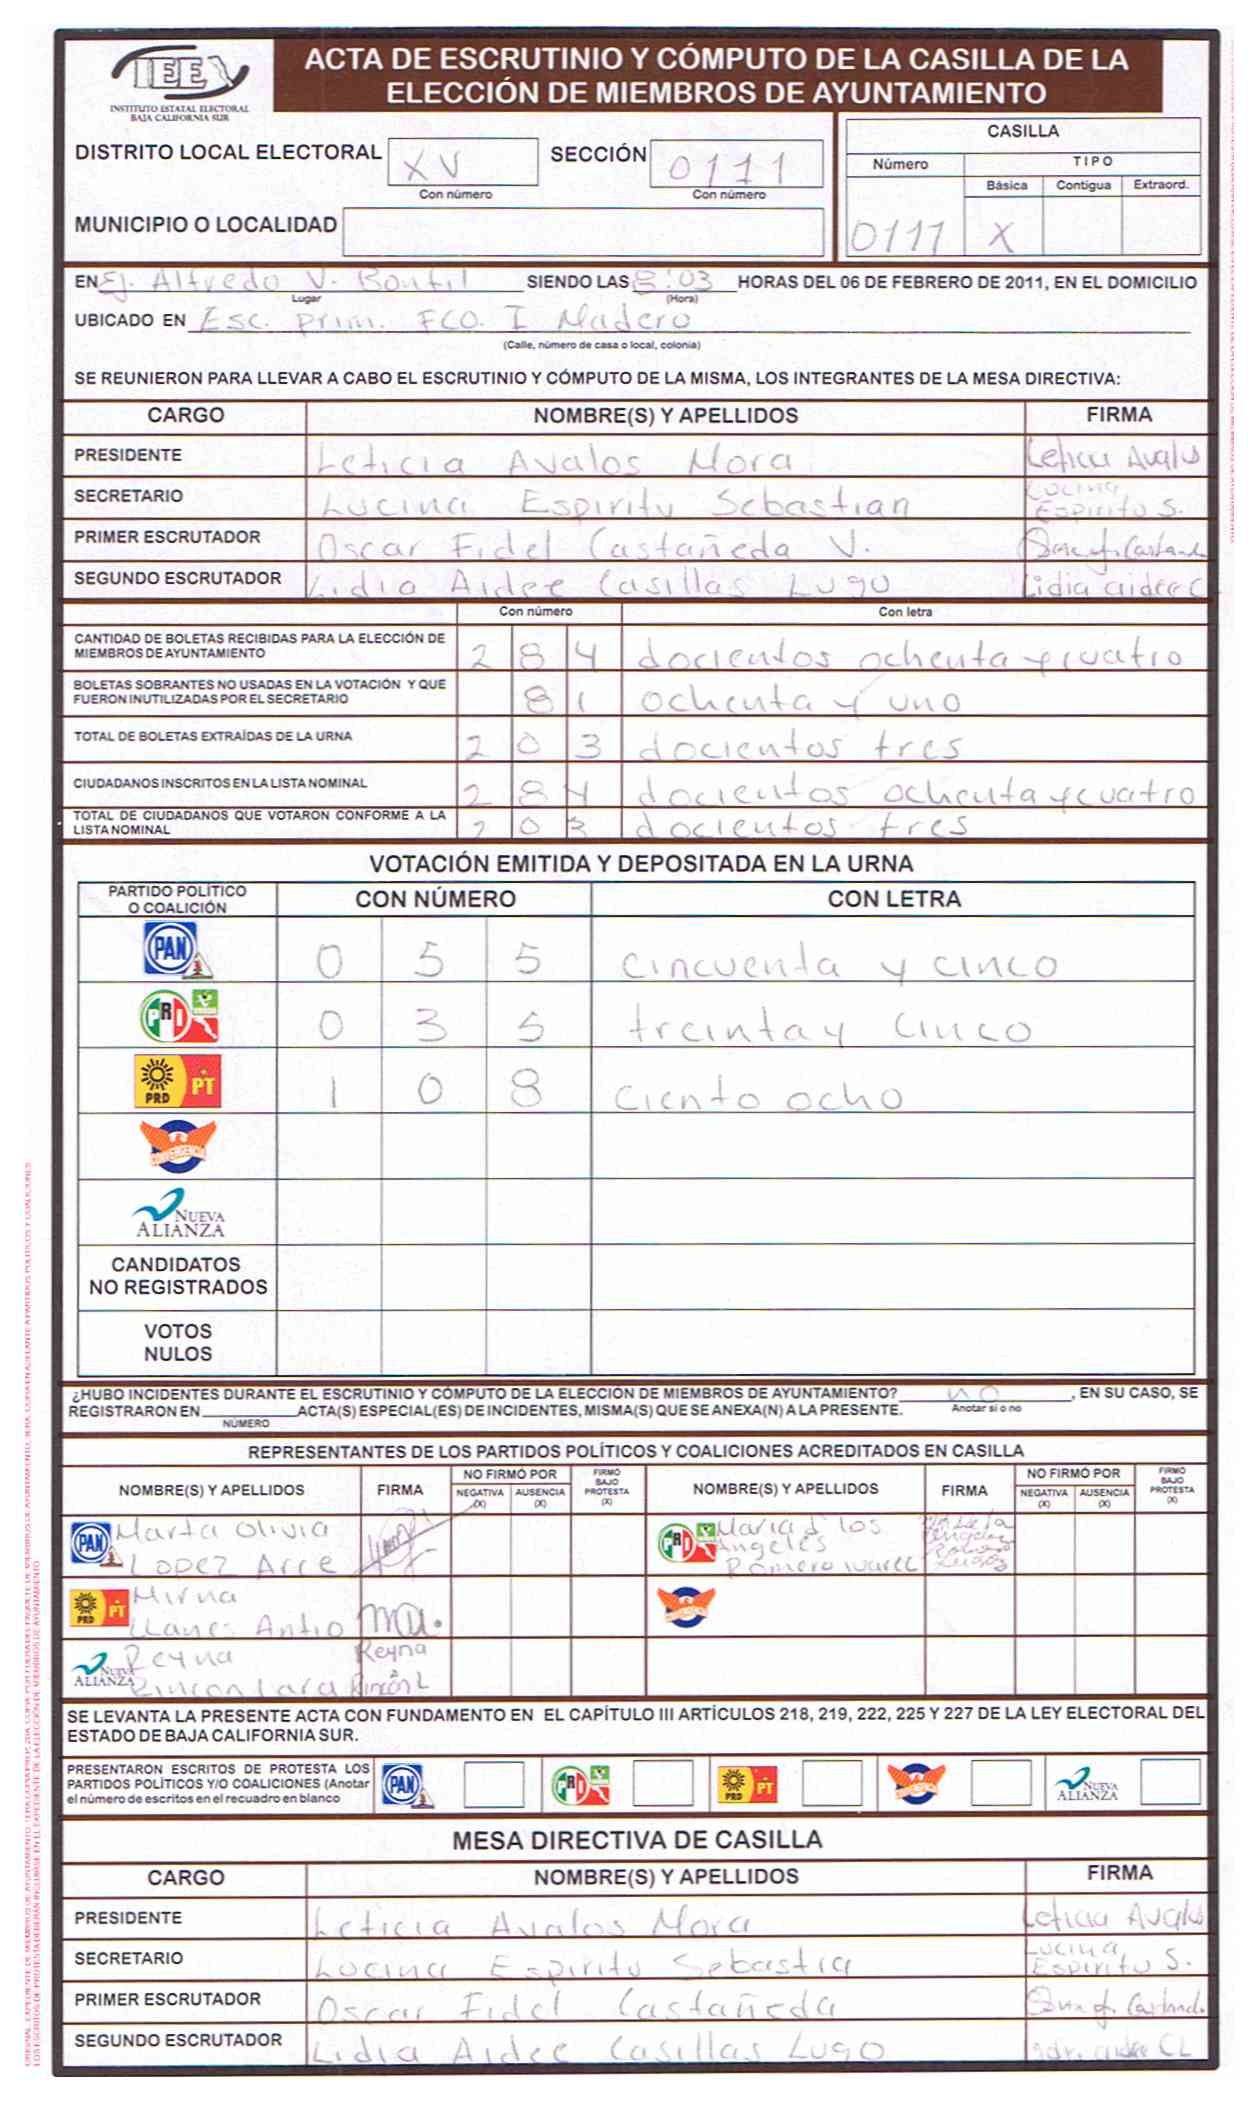 IEE
INSTITUTO ESTATAL ELECTORAL
BAJA CALIFORNIA SUR
ACTA DE ESCRUTINIO Y CÓMPUTO DE LA CASILLA DE LA
ELECCIÓN DE MIEMBROS DE AYUNTAMIENTO
DISTRITO LOCAL ELECTORAL XV SECCIÓN 0111
Con número Con número
MUNICIPIO O LOCALIDAD
CASILLA
Número TIPO
Básica Contigua Extraord.
0111 X
EN Ej. Alfredo V. Bonfil SIENDO LAS 8:03 HORAS DEL 06 DE FEBRERO DE 2011, EN EL DOMICILIO
Lugar (Hora)
UBICADO EN Esc. prim. FCO. I Madero
(Calle, número de casa o local, colonia)
SE REUNIERON PARA LLEVAR A CABO EL ESCRUTINIO Y CÓMPUTO DE LA MISMA, LOS INTEGRANTES DE LA MESA DIRECTIVA:
CARGO NOMBRE(S) Y APELLIDOS FIRMA
PRESIDENTE Leticia Avalos Mora Leticia Avalos
SECRETARIO Lucina Espiritu Sebastian Lucina Espiritu S.
PRIMER ESCRUTADOR Oscar Fidel Castañeda V.
SEGUNDO ESCRUTADOR Lidia Aidee Casillas Lugo Lidia aidee C
Con número Con letra
CANTIDAD DE BOLETAS RECIBIDAS PARA LA ELECCIÓN DE
MIEMBROS DE AYUNTAMIENTO 2 8 4 docientos ochenta y cuatro
BOLETAS SOBRANTES NO USADAS EN LA VOTACIÓN Y QUE
FUERON INUTILIZADAS POR EL SECRETARIO 8 1 ochenta y uno
TOTAL DE BOLETAS EXTRAÍDAS DE LA URNA 2 0 3 docientos tres
CIUDADANOS INSCRITOS EN LA LISTA NOMINAL 2 8 4 docientos ochenta y cuatro
TOTAL DE CIUDADANOS QUE VOTARON CONFORME A LA
LISTA NOMINAL 2 0 3 docientos tres
VOTACIÓN EMITIDA Y DEPOSITADA EN LA URNA
PARTIDO POLÍTICO
O COALICIÓN CON NÚMERO CON LETRA
PAN 0 5 5 cincuenta y cinco
PRI 0 3 5 treinta y cinco
PRD PT 1 0 8 ciento ocho
CONVERGENCIA
NUEVA
ALIANZA
CANDIDATOS
NO REGISTRADOS
VOTOS
NULOS
¿HUBO INCIDENTES DURANTE EL ESCRUTINIO Y CÓMPUTO DE LA ELECCIÓN DE MIEMBROS DE AYUNTAMIENTO? no , EN SU CASO, SE
REGISTRARON EN ACTA(S) ESPECIAL(ES) DE INCIDENTES, MISMA(S) QUE SE ANEXA(N) A LA PRESENTE. Anotar si o no
NÚMERO
REPRESENTANTES DE LOS PARTIDOS POLÍTICOS Y COALICIONES ACREDITADOS EN CASILLA
NOMBRE(S) Y APELLIDOS FIRMA NO FIRMÓ POR NEGATIVA (X) AUSENCIA (X) FIRMÓ BAJO PROTESTA (X) NOMBRE(S) Y APELLIDOS FIRMA NO FIRMÓ POR NEGATIVA (X) AUSENCIA (X) FIRMÓ BAJO PROTESTA (X)
PAN Marta Olivia
Lopez Arce
PRI Maria d los
Angeles
Romero
PRD PT Mirna
Llanes Antio
CONVERGENCIA
NUEVA ALIANZA Reyna Reyna
Rincon Lara Rincón L
SE LEVANTA LA PRESENTE ACTA CON FUNDAMENTO EN EL CAPÍTULO III ARTÍCULOS 218, 219, 222, 225 Y 227 DE LA LEY ELECTORAL DEL
ESTADO DE BAJA CALIFORNIA SUR.
PRESENTARON ESCRITOS DE PROTESTA LOS
PARTIDOS POLÍTICOS Y/O COALICIONES (Anotar
el número de escritos en el recuadro en blanco
PAN PRI PRD PT CONVERGENCIA NUEVA ALIANZA
MESA DIRECTIVA DE CASILLA
CARGO NOMBRE(S) Y APELLIDOS FIRMA
PRESIDENTE Leticia Avalos Mora Leticia Avalos
SECRETARIO Lucina Espiritu Sebastia Lucina Espiritu S.
PRIMER ESCRUTADOR Oscar Fidel Castañeda
SEGUNDO ESCRUTADOR Lidia Aidee Casillas Lugo